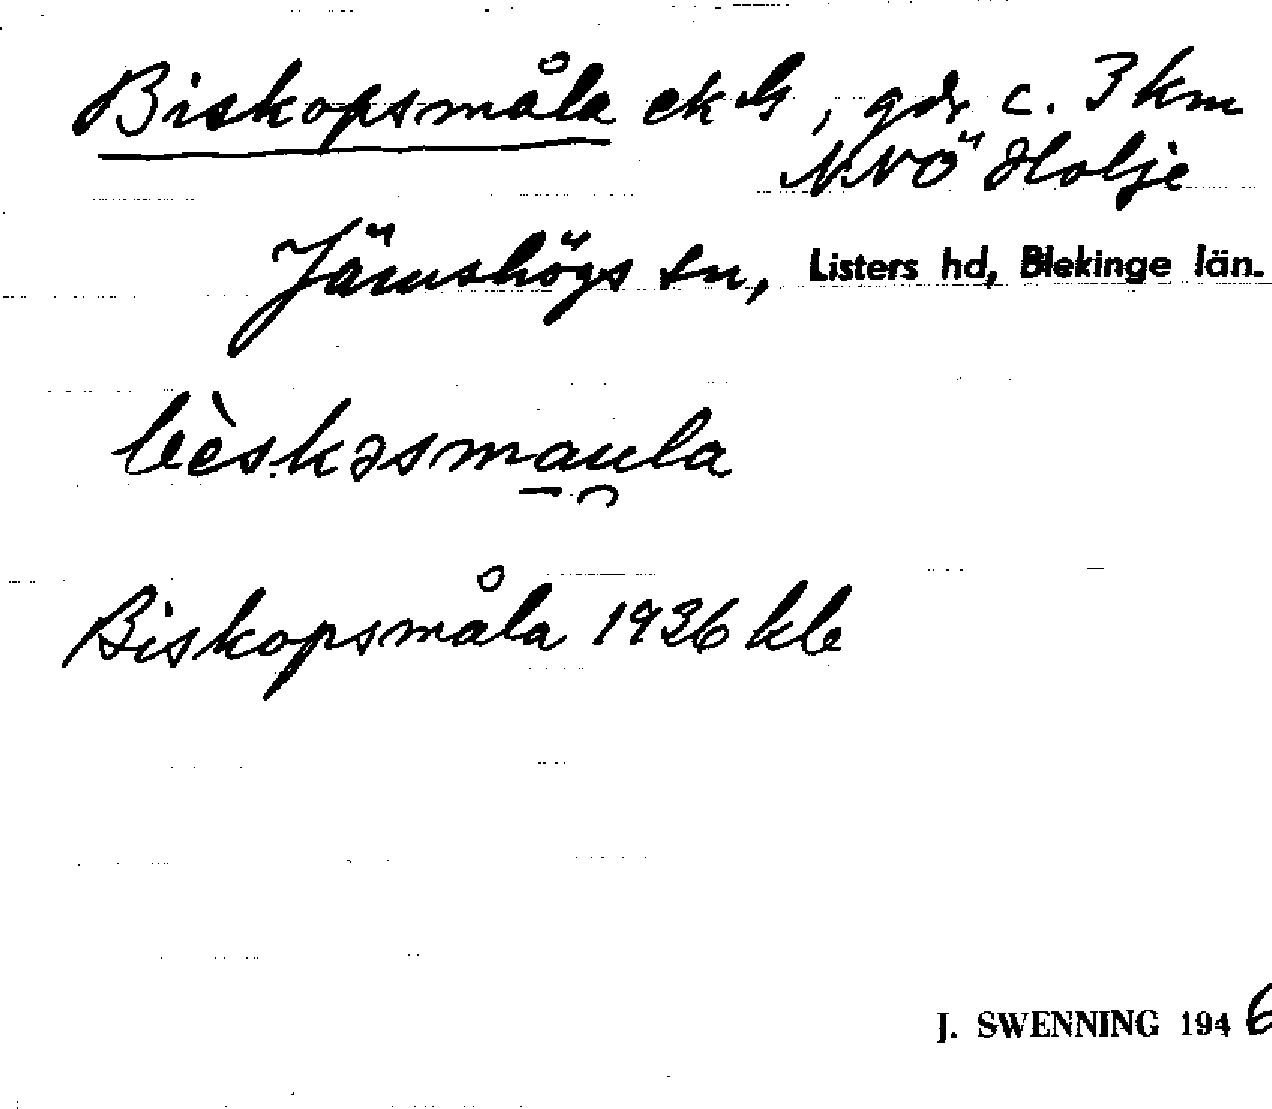 Biskopsmåla ek bl, gdr c. 3 km
NNÖ Holje
Jämshögs sn, Listers hd, Blekinge län.
bèskəsmau̯la
Biskopsmåla 1936 kb
J. SWENNING 1946